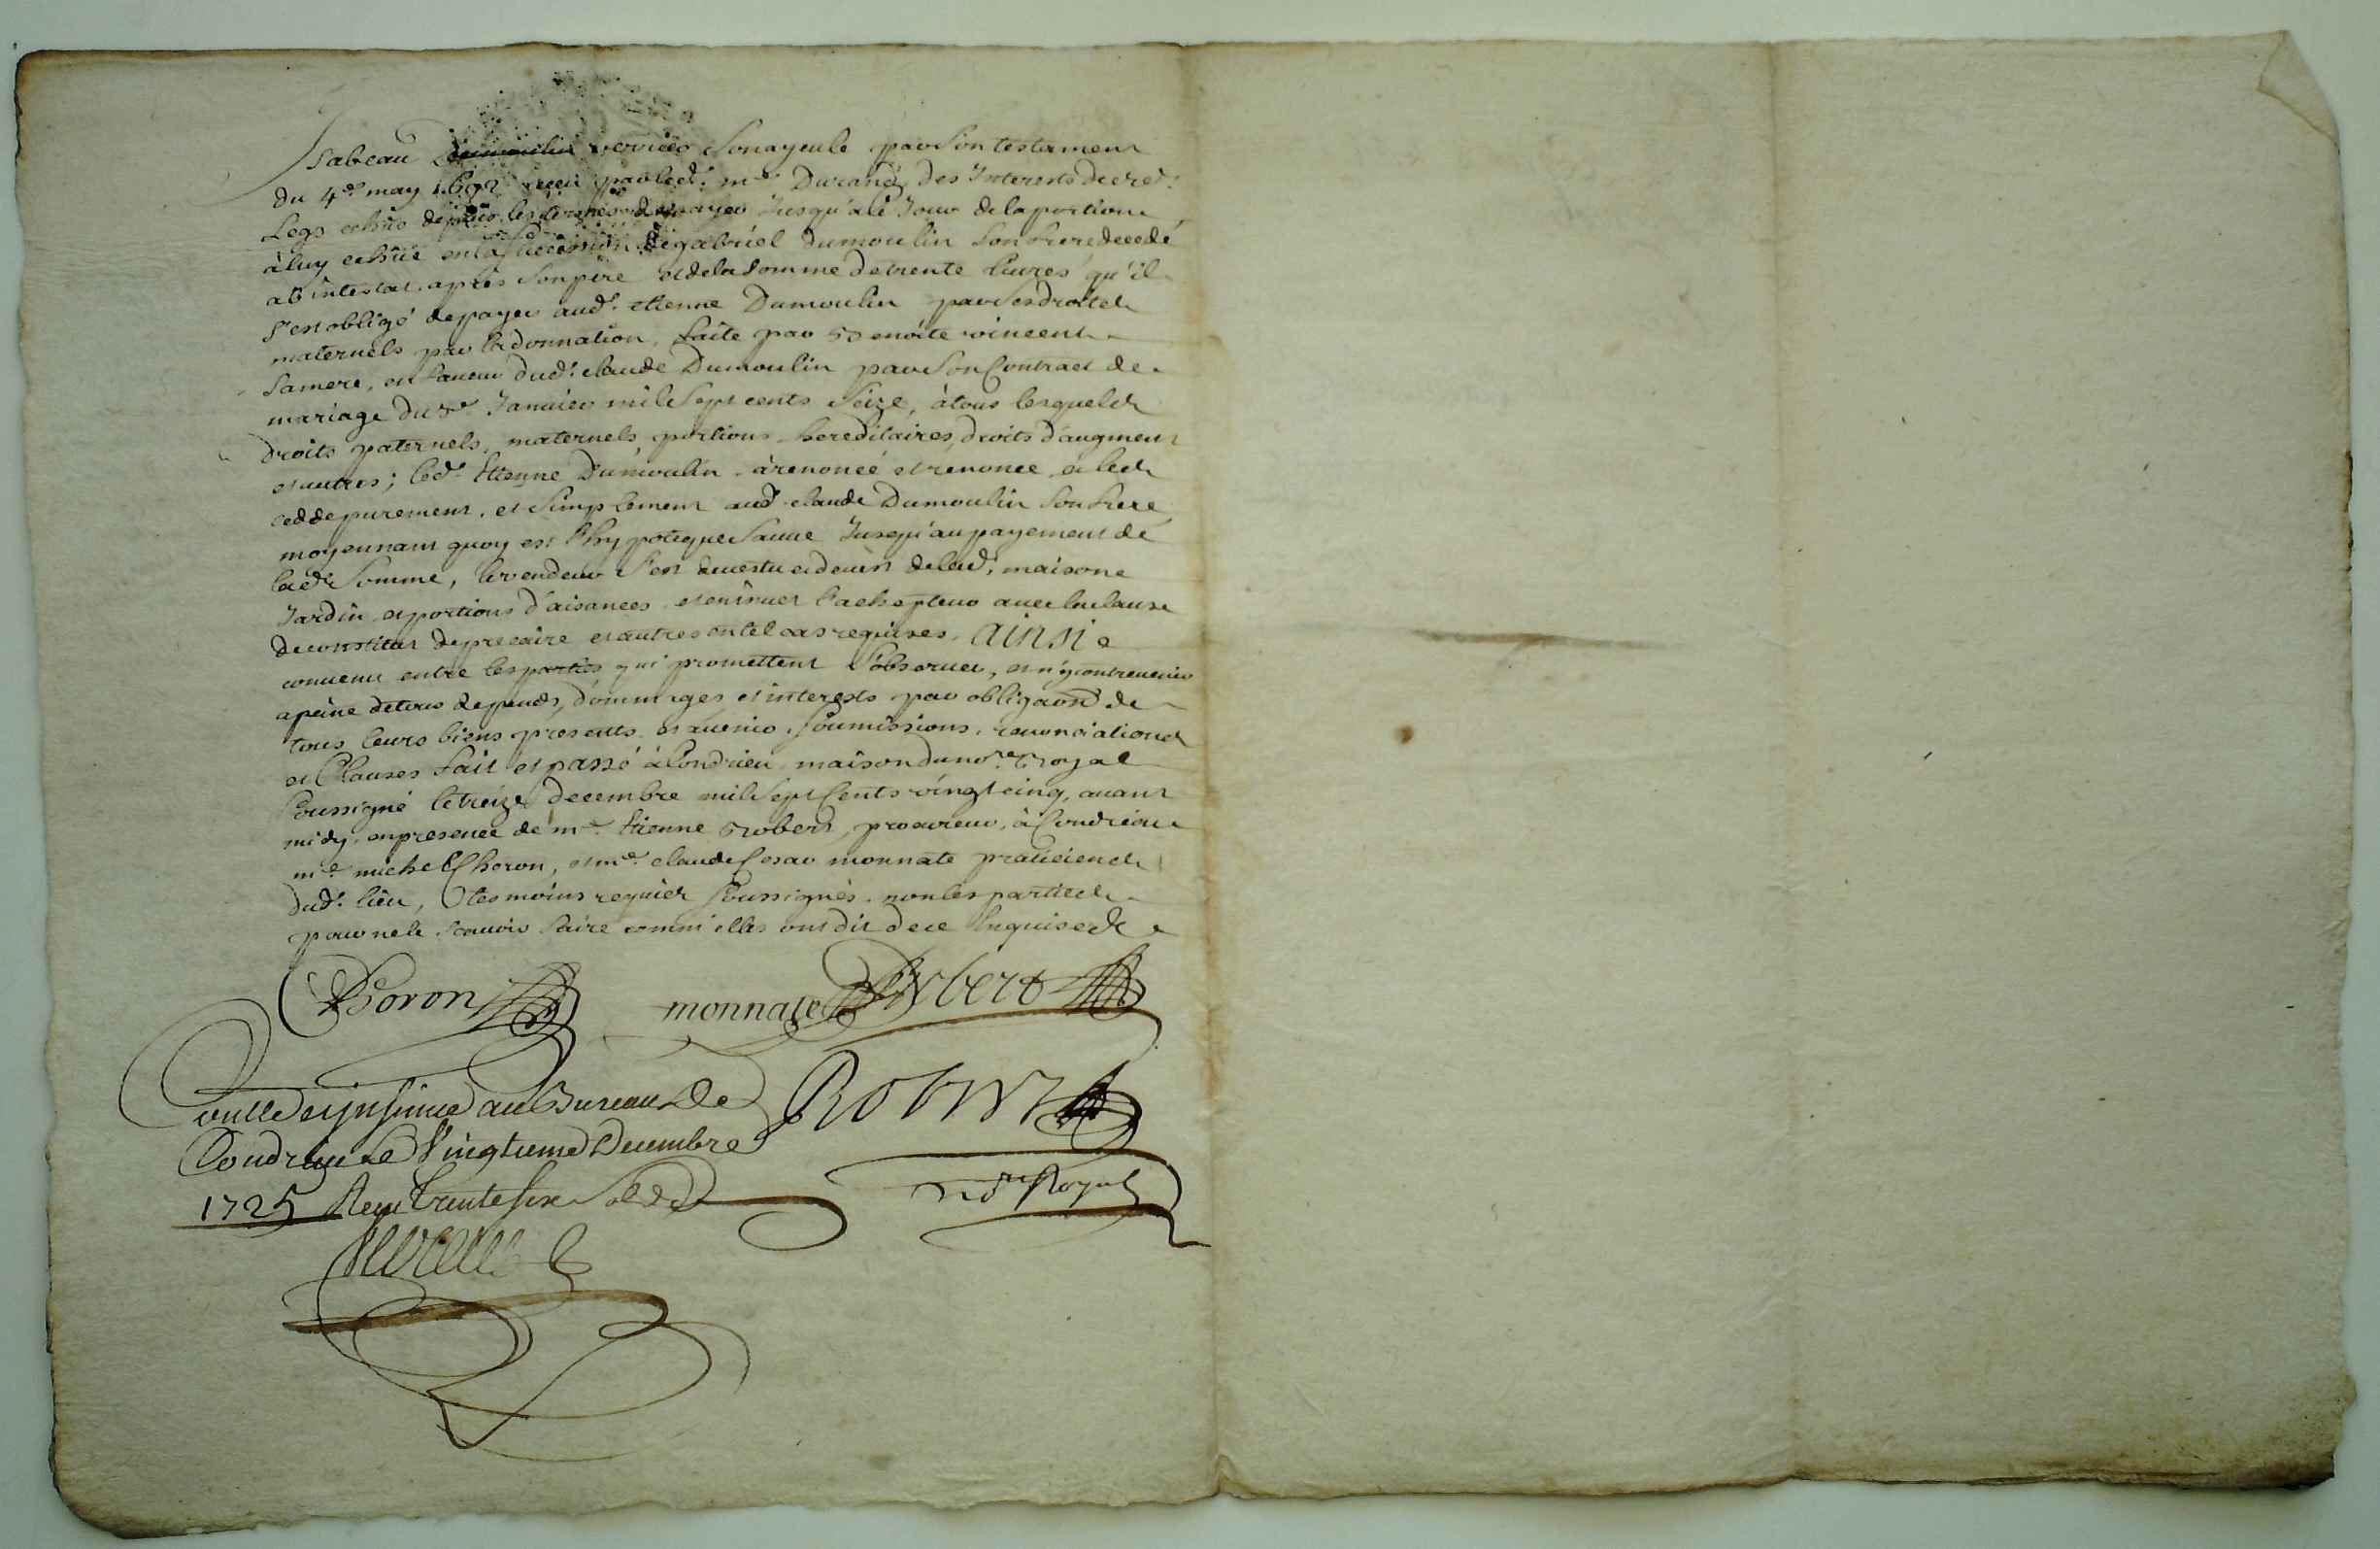 Isabeau son ayeule par son testament
du 4e may 1692 receu par led. me Durand, des Interests de ced.
Legs echus depuis les termes de payer Jusqu'a ce Jour de la portion
à luy echüe en la succession de gabriel dumoulin son frere decedé
ab intestat apres son pere et de la somme de trente livres qu'il
s'est obligé de payer aud. etienne Dumoulin par ses droits
maternels par la donnation, faite par Benoite vincent
sa mere, en faveur dud. claude Dumoulin par son Contract de
mariage du Janvier mil sept cents seize, à tous lesquels
droits paternels, maternels, portions hereditaires, droits d'augment
et autres; led. Etienne Dumoulin à renoncé et renonce,
cedde purement, et simplement aud. claude Dumoulin son frere
moyennant quoy et l'hypoteque sauve Jusqu'au payement de
lad. somme, le vendeur s'est devestu et devêt de lad. maison
Jardin et portions d'aisances et en invet l'achepteur avec la clause
de constitut de precaire et autres en tel cas requises. ainsi
convenu entre les parties qui promettent l'observer, et n'y contrevenir
a peine de tous depends, dommages et interests par obligaon de
tous leurs biens presents et avenir, soumissions, renonciations
et Clauses fait et passé à Condrieu maison du nore Royal
soussigné le treize decembre mil sept Cents vingt cinq, avant
midy, en presence de me Etienne Robert, procureur, à Condrieu
me michel Choron, et me claude Cesar monnate praticiens
dud. lieu, tesmoins requis soussignés, non les parties
pour ne le scavoir faire comm'elles ont dit de ce Enquises
Choron monnate Robert
Controllé et jnsinué au Bureau de
Robert
Condrieu Le Vingtieme Decembre
1725 Receu trente six sols
nore Royal